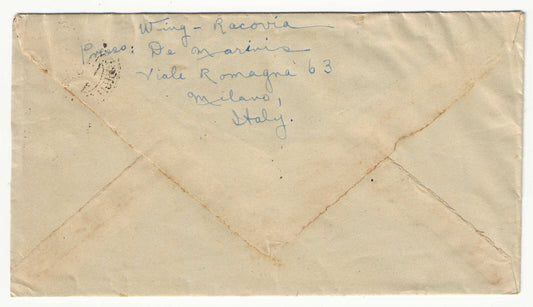 Wing - Racovia
Presso: De Marinis
Viale Romagna 63
Milano,
Italy.